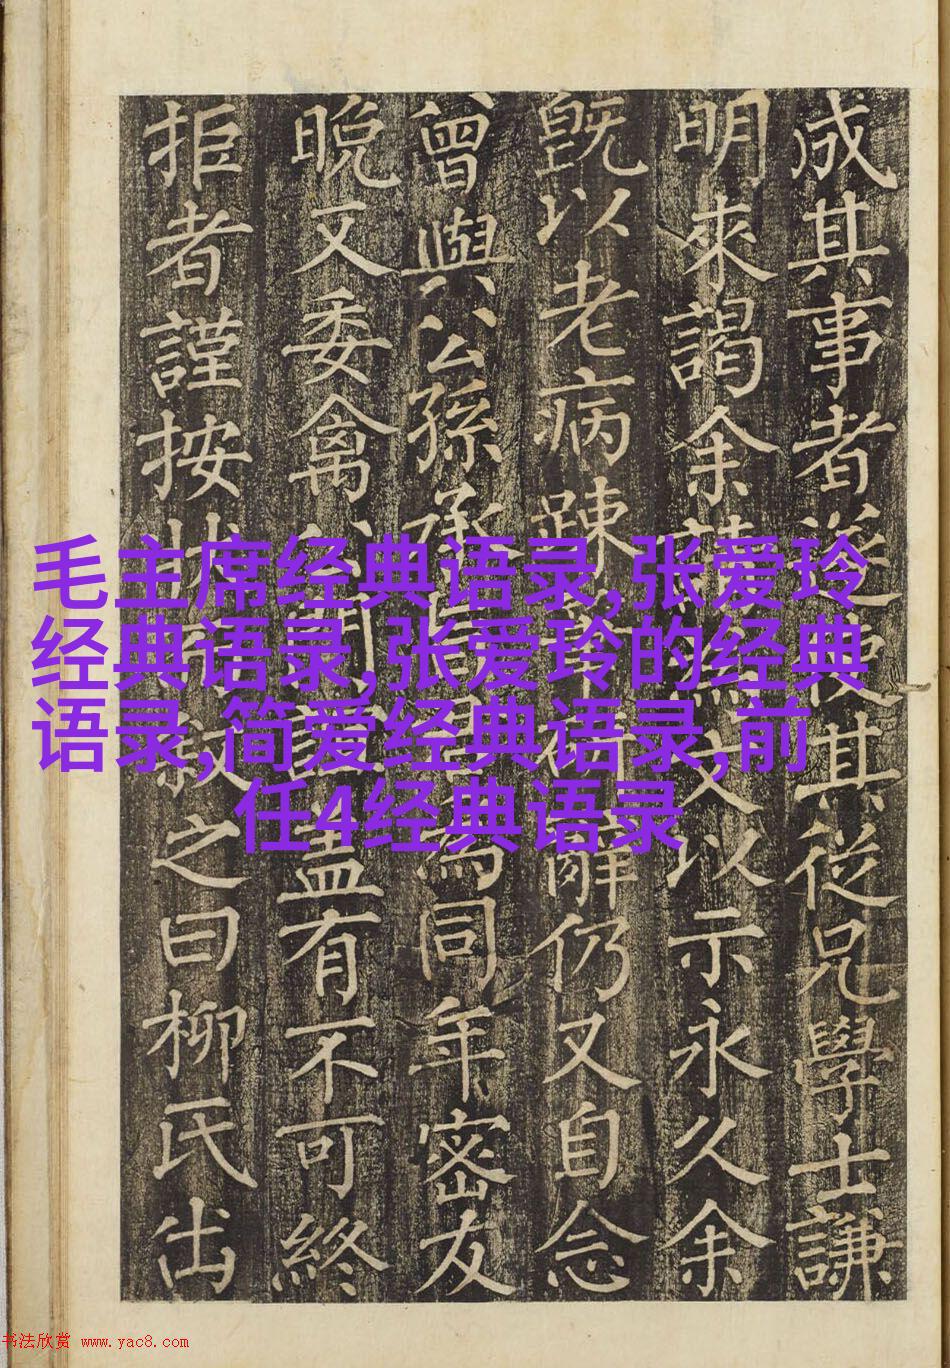 成其事者使其從兄學士謙
明來謁余請文以示永久余
旣以老病踈辭仍又自念
曾與公孫承為同年密友
晚又委禽盖有不可終
拒者謹按狀叙之曰柳氏出
毛主席经典语录,张爱玲
经典语录,张爱玲的经典
语录,简爱经典语录,前
任4经典语录
书法欣赏 www.yac8.com